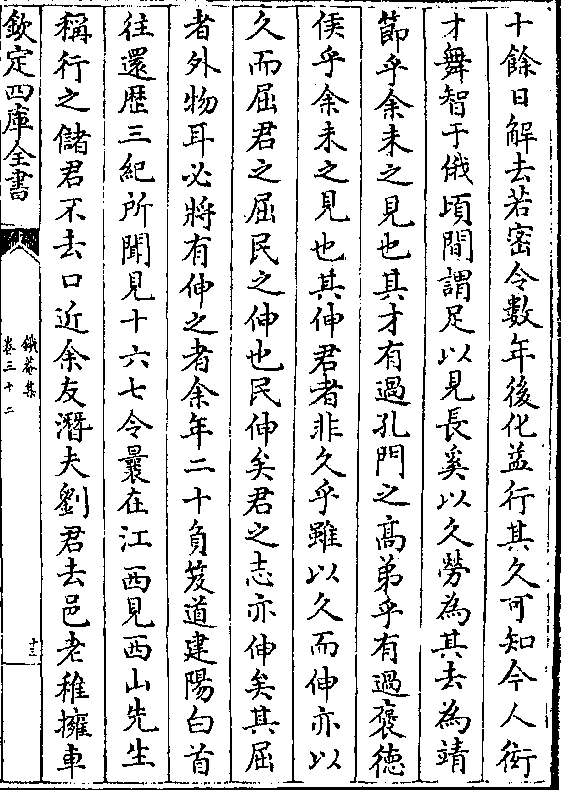 十餘日解去若密令數年後化益行其久可知今人衒
才舞智于俄頃間謂足以見長奚以久勞為其去為靖
節乎余未之見也其才有過孔門之髙弟乎有過褒徳
侯乎余未之見也其伸君者非久乎雖以久而伸亦以
久而屈君之屈民之伸也民伸矣君之志亦伸矣其屈
者外物耳必將有伸之者余年二十負笈道建陽白首
往還歴三紀所聞見十六七令曩在江西見西山先生
稱行之儲君不去口近余友潛夫劉君去邑老稚擁車
欽定四庫全書
鐵菴集
卷三十二
十三